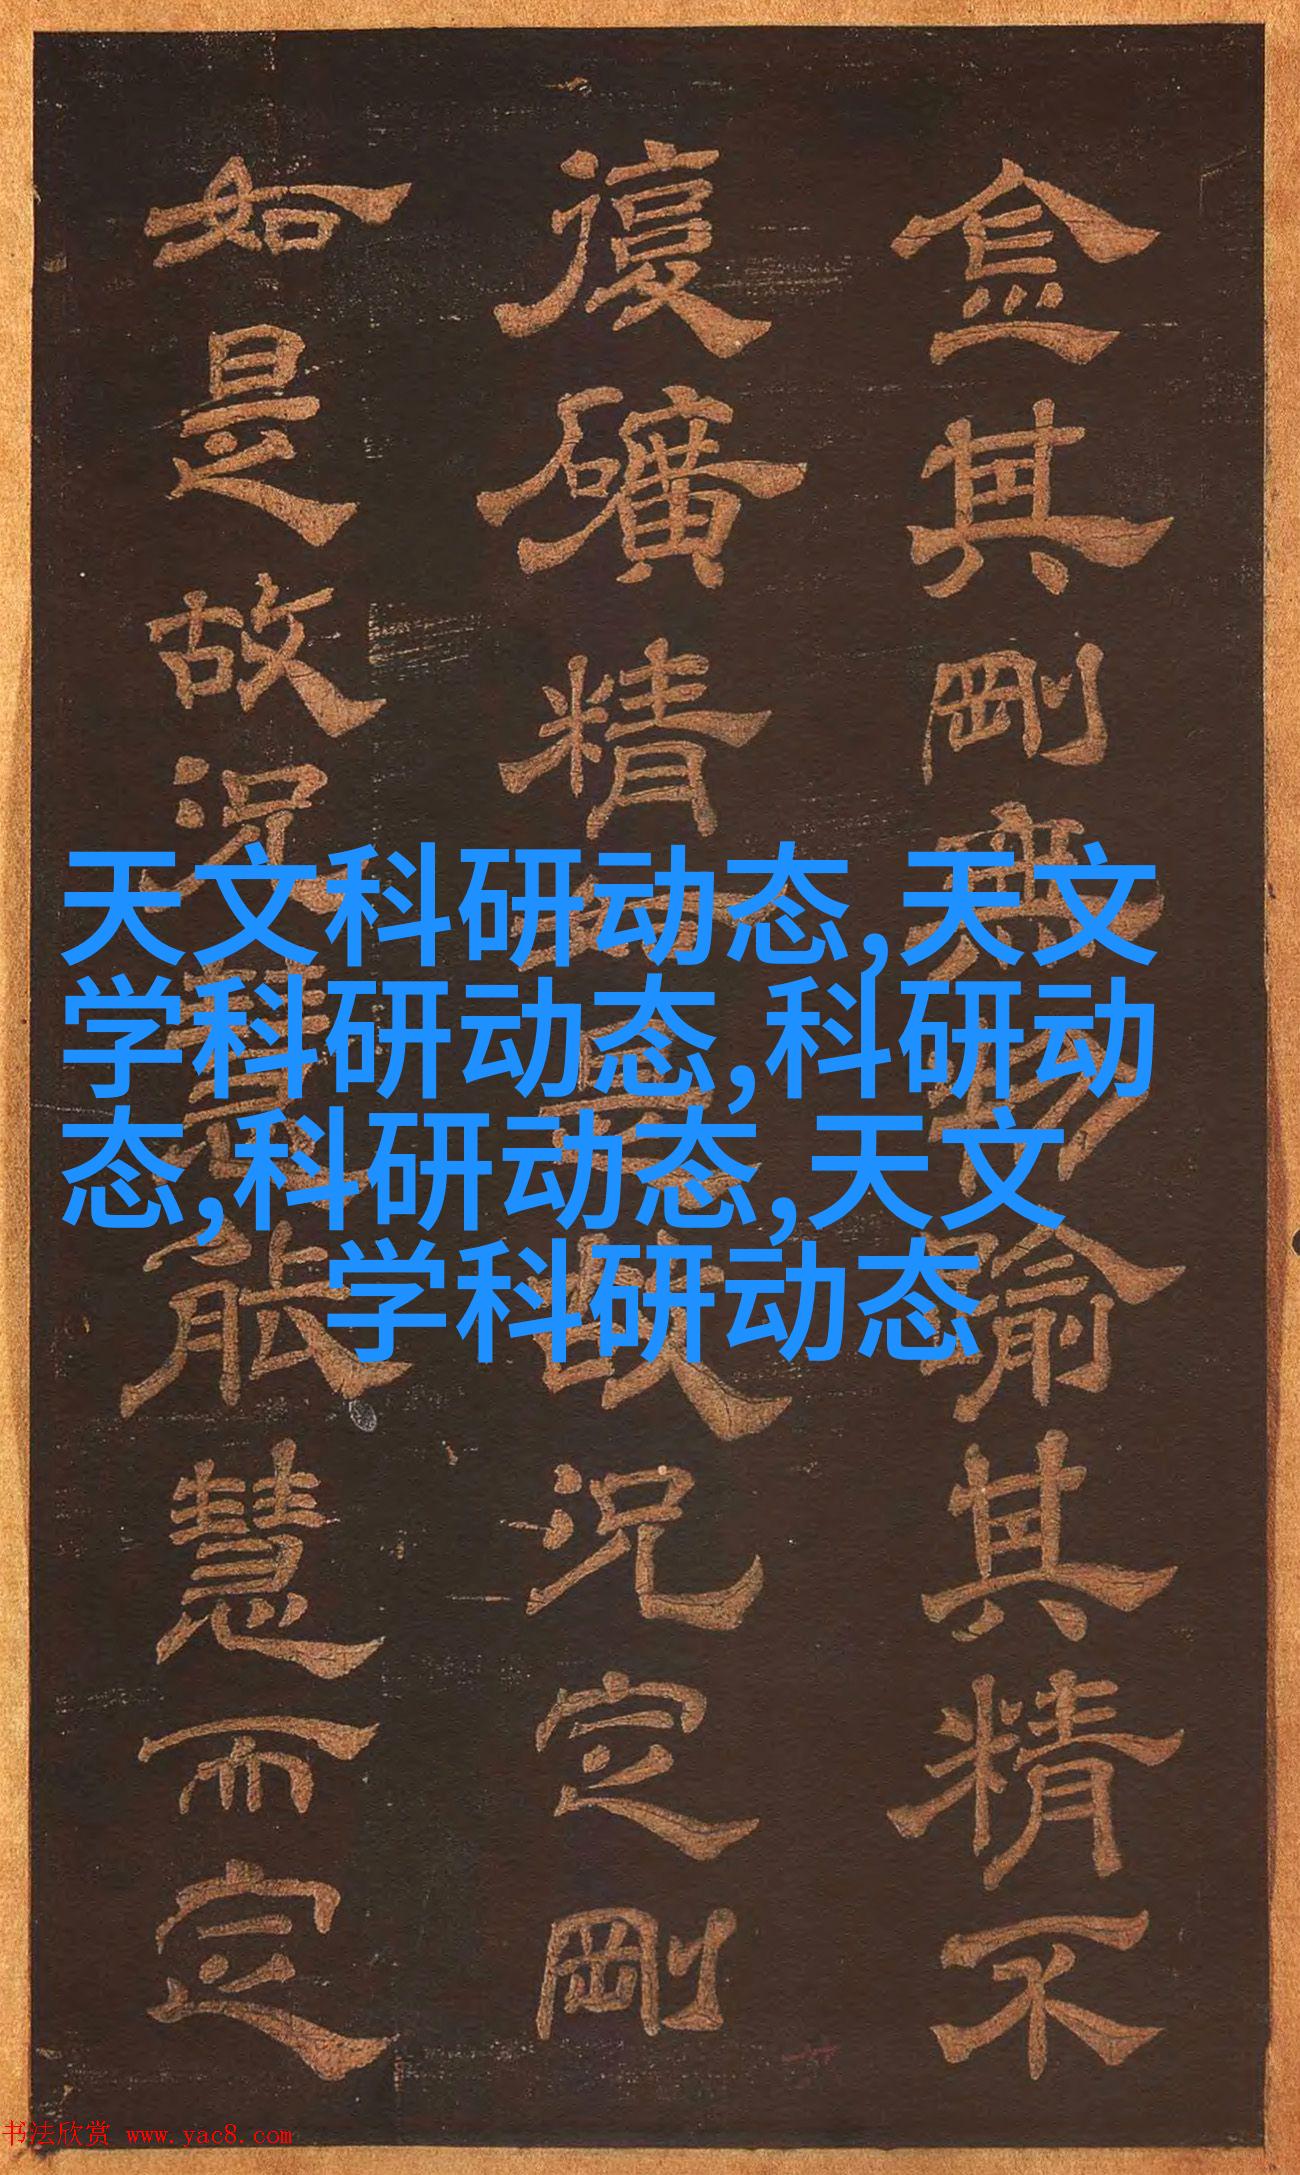 金其剛無物喻其精不
復礦精故況定剛
如是故況慧能慧而定
天文科研动态,天文
学科研动态,科研动
态,科研动态,天文
学科研动态
书法欣赏 www.yac8.com